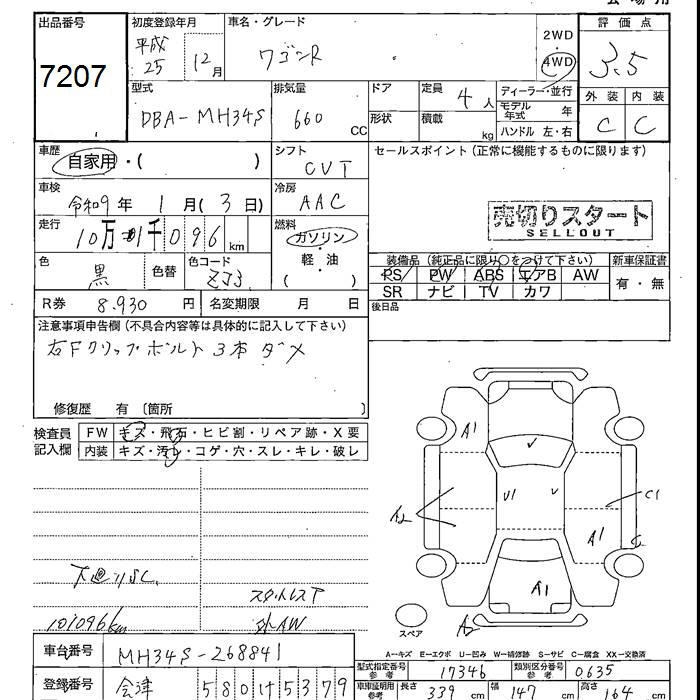 出品番号 初度登録年月 車名・グレード 評価点
7207 平成25年 12月 ワゴンR 2WD 4WD 3.5
型式 排気量 ドア 定員 ディーラー・並行 外装 内装
DBA-MH34S 660 CC 4人 モデル年式 年 C C
形状 積載 kg ハンドル 左・右
車歴 自家用・( ) シフト CVT セールスポイント(正常に機能するものに限ります)
車検 令和9年 1月(3日) 冷房 AAC
売切りスタート
SELLOUT
走行 10万1千096km 燃料 ガソリン・軽・油 ( )
色 黒 色替 色コード ZJ3
装備品(純正品に限り○をつけて下さい) 新車保証書
PS PW ABS エアB AW 有・無
SR ナビ TV カワ
R券 8,930円 名変期限 月 日 後日品
注意事項申告欄(不具合内容等は具体的に記入して下さい)
右Fクリップボルト3本ダメ
修復歴 有〔箇所 〕
検査員記入欄 FW キズ・飛石・ヒビ割・リペア跡・X要
内装 キズ・汚レ・コゲ・穴・スレ・キレ・破レ
A1
U1
C1
A2
A1
C
A1
A2
下廻りSC
スタットレスT
101096km 外AW
スペア
A—キズ E—エクボ U—凹み W—補修跡 S—サビ C—腐食 XX—交換済
車台番号 MH34S-268841
型式指定番号 参考 17346 類別区分番号 参考 0635
登録番号 会津 580 5379
車庫証明用 参考 長さ 339 cm 幅 147 cm 高さ 164 cm